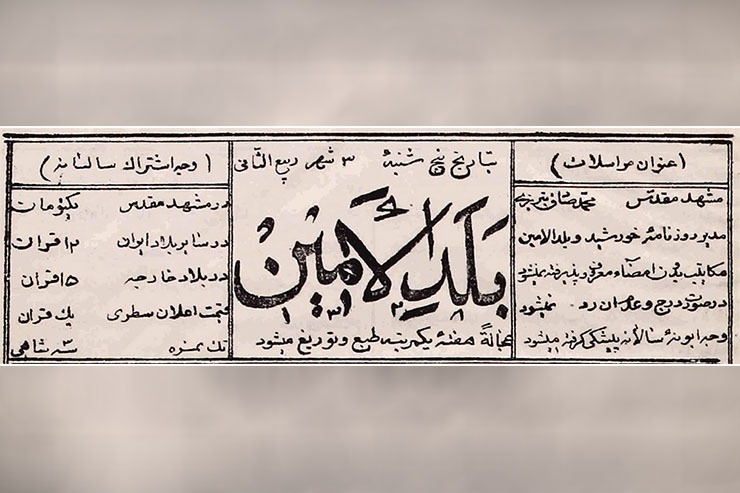 (عنوان مراسلات)
مشهد مقدس محمد صادق تبریزی
مدیر روزنامهٔ خورشید و بلد الامین
مکاتیب بدون امضآء معروف پذیرفته نمیشود
در صورت درج و عدم ان رد نمیشود
وجه ابونهٔ سالانه پیشکی گرفته میشود
بتاریخ پنج شنبهٔ ۳ شهر ربیع الثانی
بَلَدِ الْأَمِیْنْ
عجالةً هفتهٔ یکمرتبه طبع و توزیع میشود
(وجه اشتراک سالیانه)
در مشهد مقدس یکتومان
در سایر بلاد ایران ۱۲ قران
در بلاد خارجه ۱۵ قران
قیمت اعلان سطری یک قران
تک نمره سه شاهی